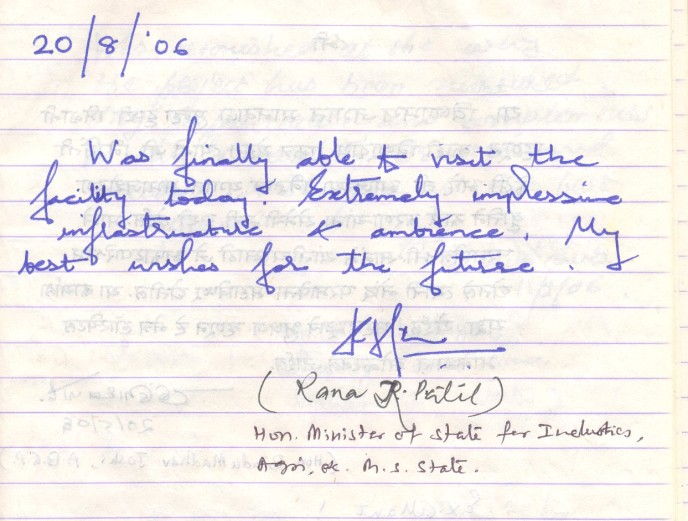 20/8/'06
Was finally able to visit the
facility today. Extremely impressive
infrastructure & ambience. My
best wishes for the future.
(Rana J. Patil)
Hon. Minister of state for Industries,
Agri, M.S. State.